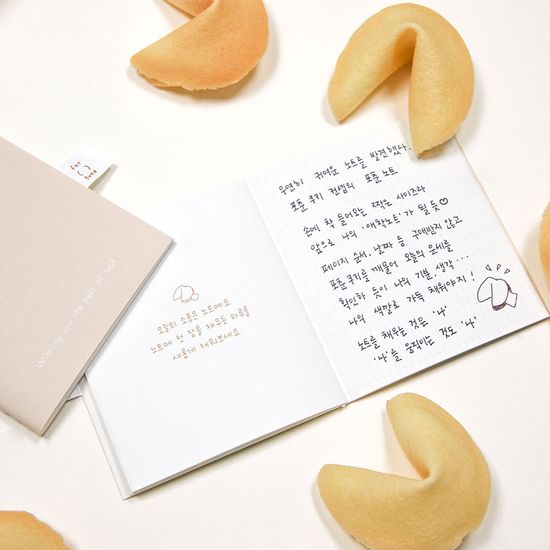 for
tune
Wishing you the best of luck
오늘의 소품은 노트예요
노트에 첫 장을 채우듯 하루를
새롭게 채워보세요
우연히 귀여운 노트를 발견했다.
포춘 쿠키 컨셉의 포춘 노트
손에 착 들어오는 작은 사이즈라
앞으로 나의 '애착노트'가 될 듯♡
페이지 순서, 날짜 등 구애받지 않고
포춘쿠키를 깨물어 오늘의 운세를
확인하듯이 나의 기분, 생각...
나의 색깔로 가득 채워야지!
노트를 채우는 것은 '나'
'나'를 움직이는 것도 '나'